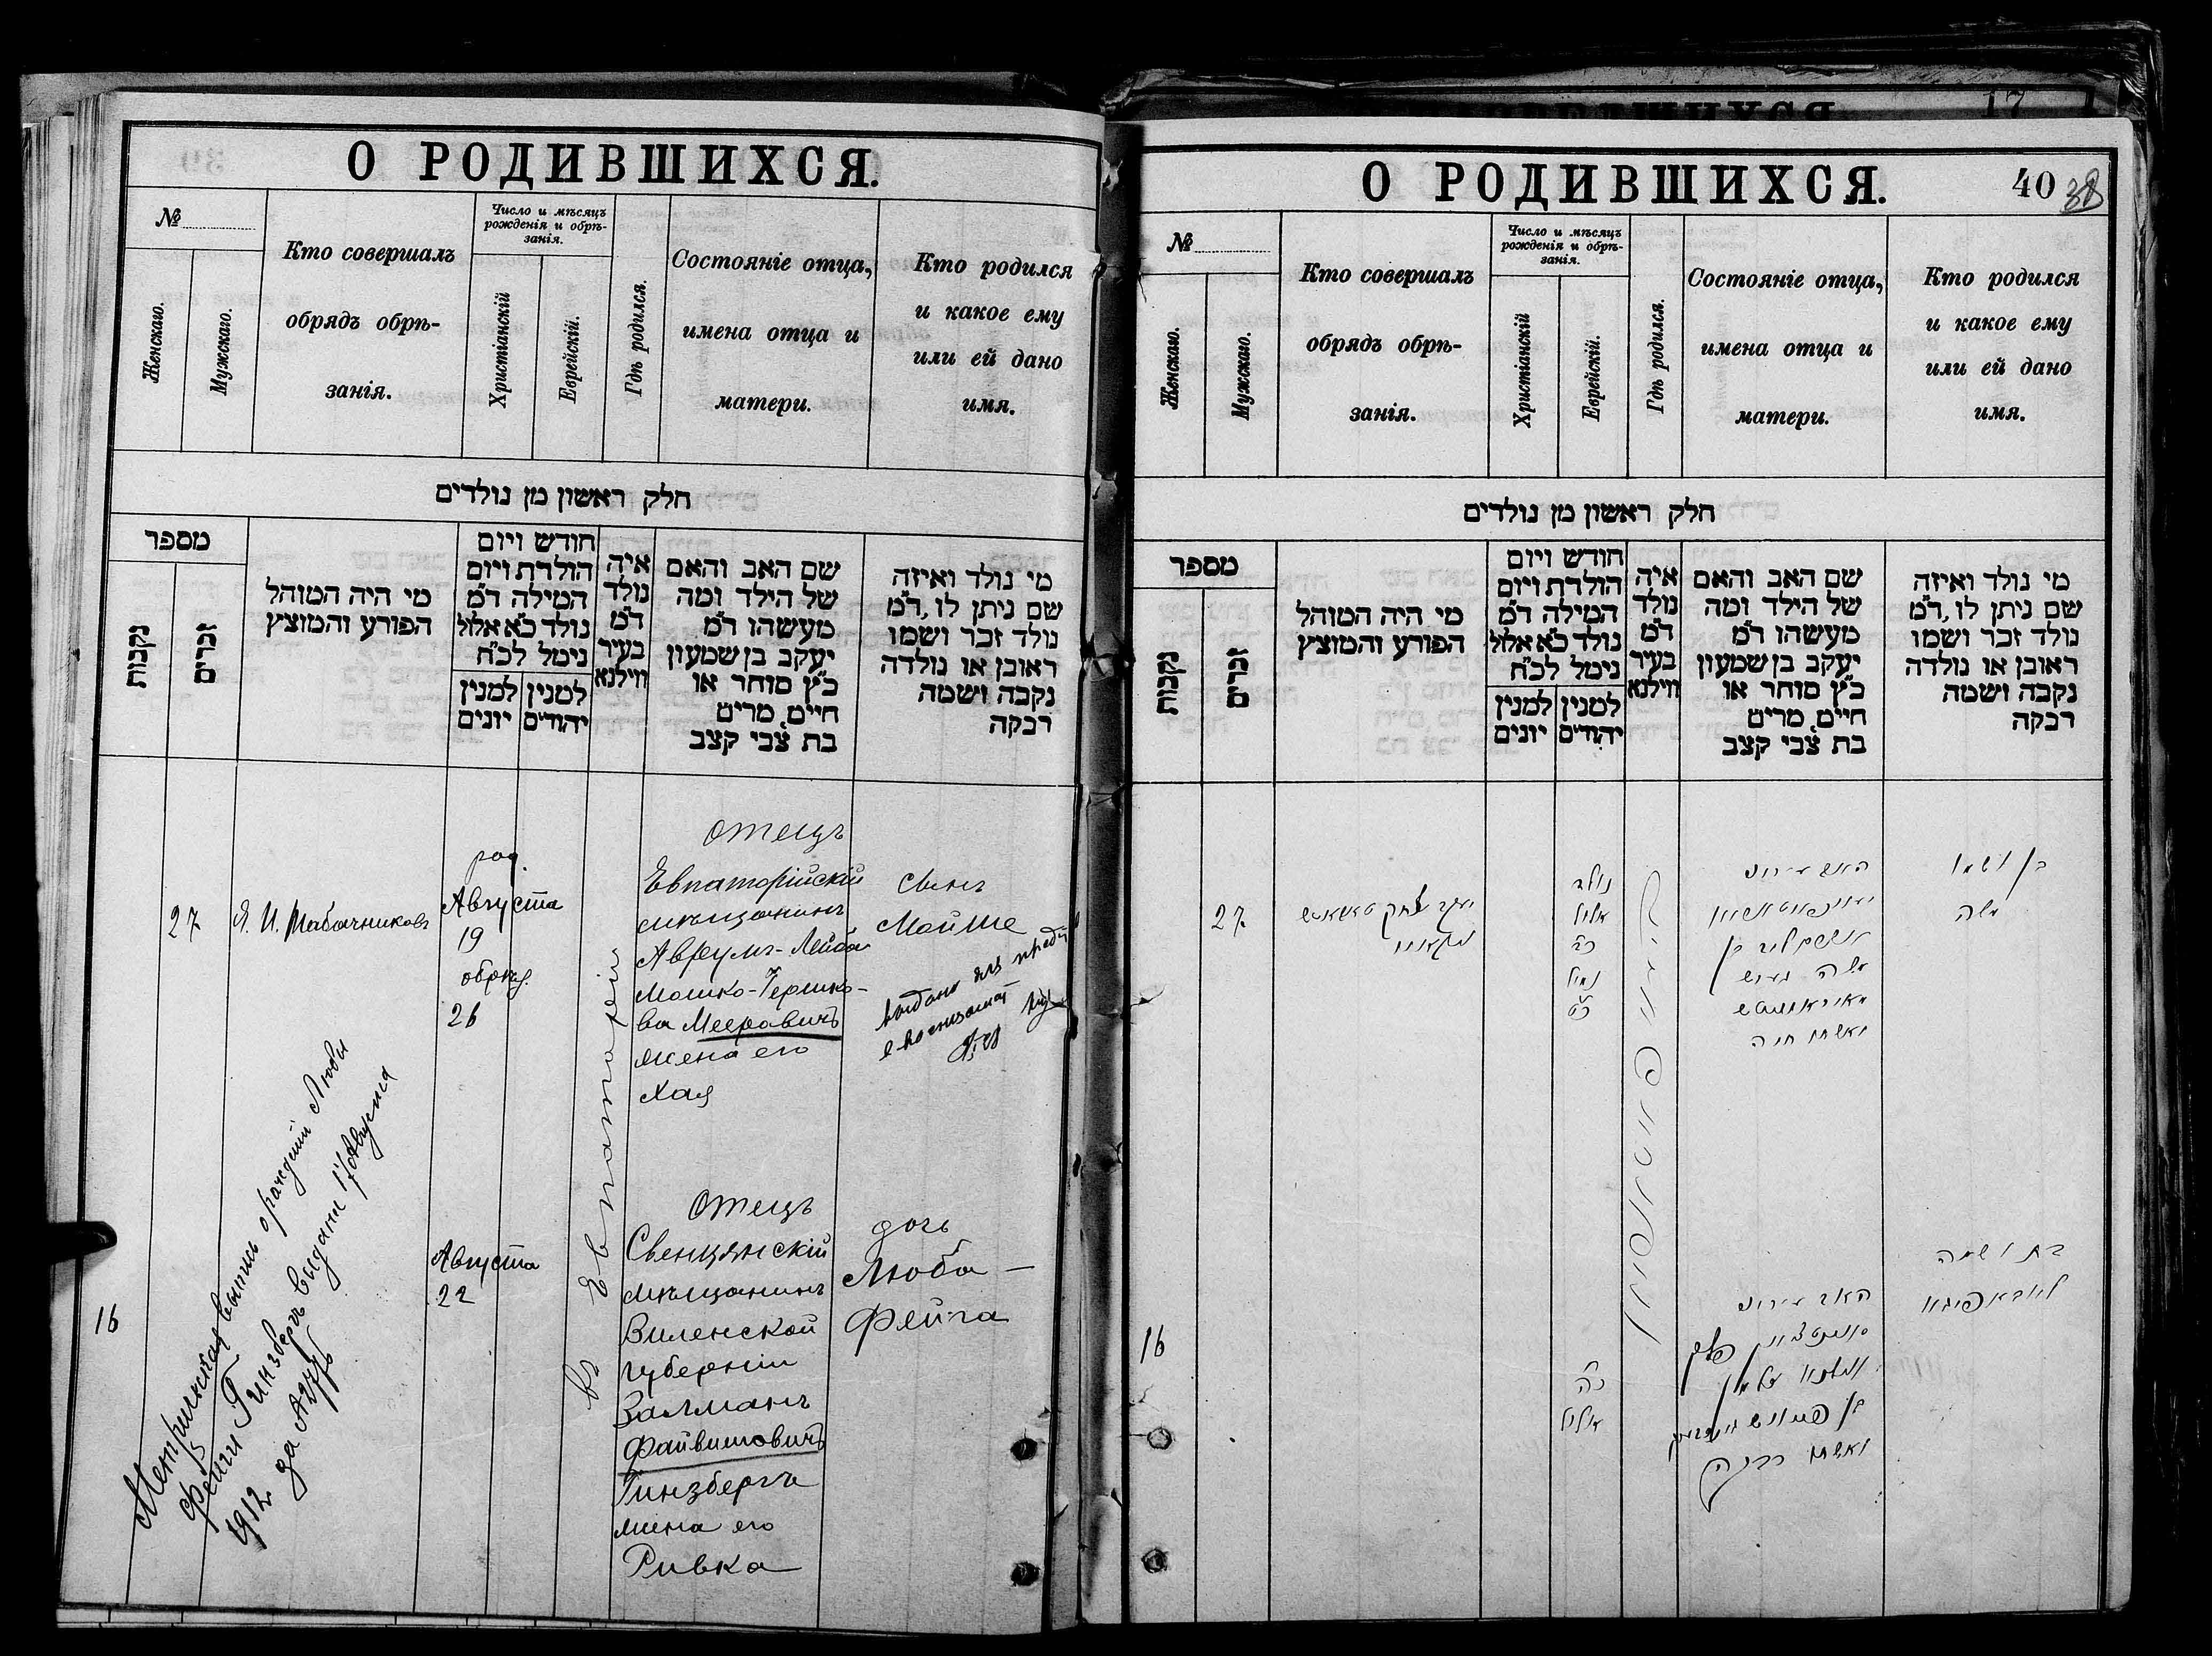 О РОДИВШИХСЯ.
№
Женскаго.
Мужскаго.
Кто совершалъ
обрядъ обрѣ-
занія.
Число и мѣсяцъ
рожденія и обрѣ-
занія.
Христіанскій
Еврейскій.
Гдѣ родился.
Состояніе отца,
имена отца и
матери.
Кто родился
и какое ему
или ей дано
имя.
חלק ראשון מן נולדים
מספר
נקבות
זכרים
מי היה המוהל
הפורע והמוצץ
חודש ויום
הולדת ויום
המילה ד״מ
נולד כ״א אלול
נימל לכ״ח
למנין יונים
למנין יהודים
איה
נולד
ד״מ
בעיר
ווילנא
שם האב והאם
של הילד ומה
מעשהו ד״מ
יעקב בן שמעון
כ״ץ סוחר או
חיים, מרים
בת צבי קצב
מי נולד ואיזה
שם ניתן לו, ד״מ
נולד זכר ושמו
ראובן או נולדה
נקבה ושמה
רבקה
27
Я. И. Табачниковъ
род.
Августа
19
обрѣз.
26
въ Евпаторіи
отецъ
Евпаторійскій
мѣщанинъ
Аврумъ-Лейба
Мошко-Гершко-
ва Мееровичъ
жена его
Хая
сынъ
Мойше
16
Августа
22
Отецъ
Свенцянскій
мѣщанинъ
Виленской
губерніи
Залманъ
Файвишовичъ
Гинзбергъ
жена его
Ривка
дочь
Люба —
Фейга
Метрическая выпись о рожденіи Любы
Фейги Гинзбергъ выдана 17 Августа
1912 за № 276
О РОДИВШИХСЯ.
40 38
№
Женскаго.
Мужскаго.
Кто совершалъ
обрядъ обрѣ-
занія.
Число и мѣсяцъ
рожденія и обрѣ-
занія.
Христіанскій
Еврейскій.
Гдѣ родился.
Состояніе отца,
имена отца и
матери.
Кто родился
и какое ему
или ей дано
имя.
חלק ראשון מן נולדים
מספר
נקבות
זכרים
מי היה המוהל
הפורע והמוצץ
חודש ויום
הולדת ויום
המילה ד״מ
נולד כ״א אלול
נימל לכ״ח
למנין יונים
למנין יהודים
איה
נולד
ד״מ
בעיר
ווילנא
שם האב והאם
של הילד ומה
מעשהו ד״מ
יעקב בן שמעון
כ״ץ סוחר או
חיים, מרים
בת צבי קצב
מי נולד ואיזה
שם ניתן לו, ד״מ
נולד זכר ושמו
ראובן או נולדה
נקבה ושמה
רבקה
27
נולד
אלול
נמול
האב עירוני
משה
ואשתו חיה
בן ושמו
משה
16
כה
אלול
האב עירוני
ואשתו רבקה
בת ושמה
ליובא פייגא